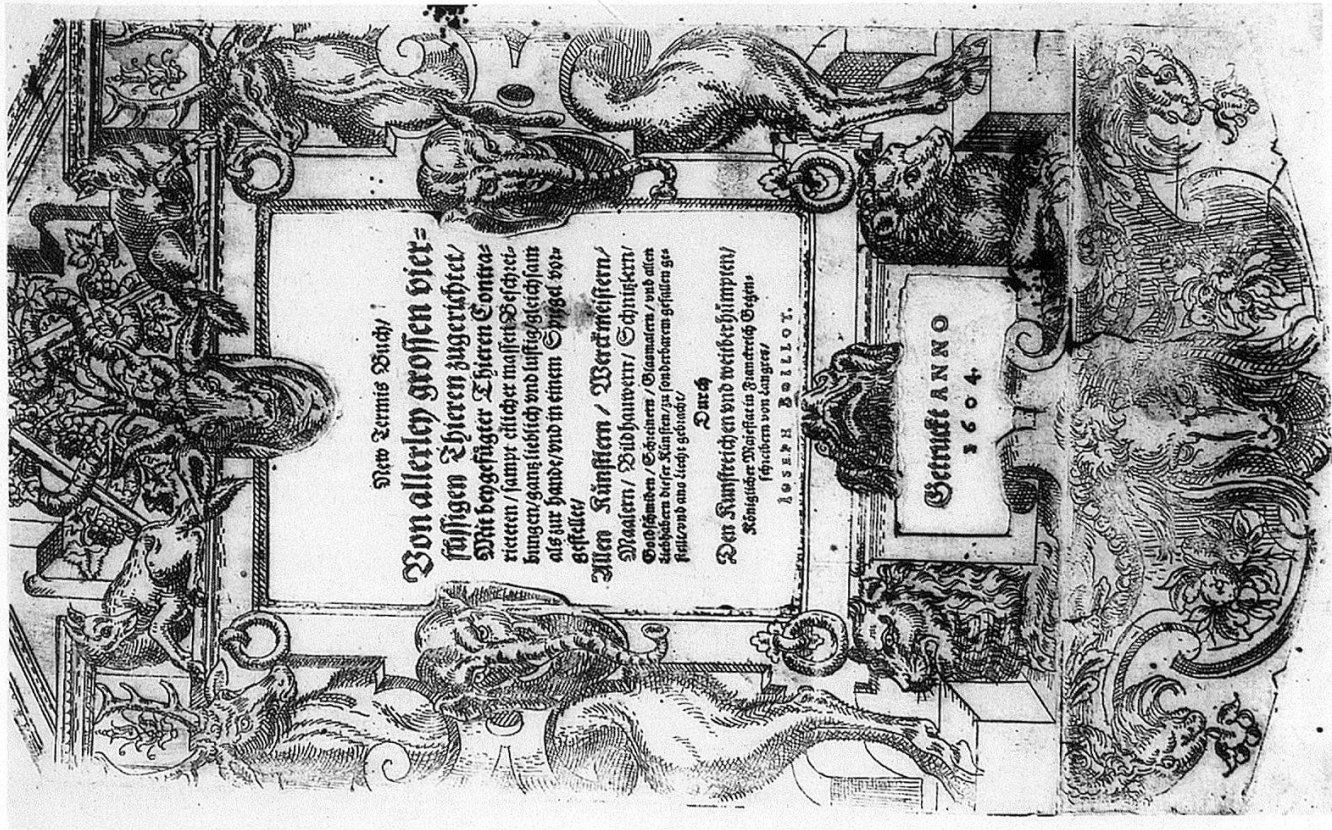 New Termis Buch/
Von allerley grossen vier=
füssigen Thieren zugerichtet/
Mit beygefügter Thieren Contra=
rieteten / sampt etlicher massen Beschrei=
bungen/gantz lieblich vnd lustig/gleichsam
als zur hande/vnd in einem Spiegel vor=
gestellet/
Allen Künstlern / Werckmeistern/
Maalern / Bildhauwern / Schnitzkern/
Goldschmiden / Schreinern / Glasmalern / vnd allen
Liebhabern dieser Künsten/zu sonderbarem gefallen ge=
stellt vnd ans Liecht gebracht/
Durch
Den Kunstreichen vnd weitberhümpten/
Königlicher Maiestat in Franckreich Gegen=
schreibern von Langres/
IOSEPH BOILLOT.
Getruckt ANNO
1604.